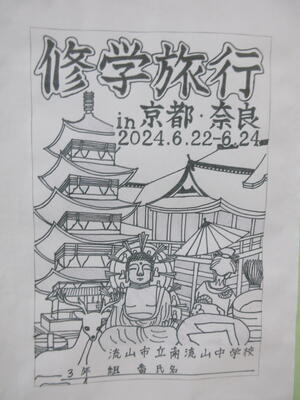 修学旅行
in 京都・奈良
2024.6.22-6.24
流山市立南流山中学校
3年 組 番氏名